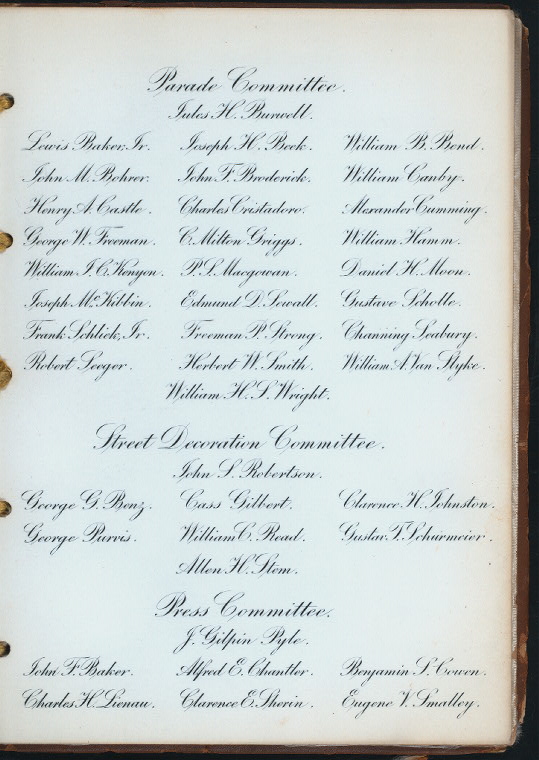 Parade Committee.
Jules H. Burwell.
Lewis Baker, Jr. Joseph H. Beek. William B. Bend.
John M. Bohrer. John F. Broderick. William Canby.
Henry A. Castle. Charles Cristadoro. Alexander Cumming.
George W. Freeman. C. Milton Griggs. William Hamm.
William F. C. Kenyon. P. S. Macgowan. Daniel H. Moon.
Joseph McKibbin. Edmund D. Sewall. Gustave Scholle.
Frank Schlick, Jr. Freeman P. Strong. Channing Seabury.
Robert Seeger. Herbert W. Smith. William A. Van Slyke.
William H. S. Wright.
Street Decoration Committee.
John S. Robertson.
George G. Benz. Cass Gilbert. Clarence H. Johnston.
George Purvis. William C. Read. Gustav T. Schurmeier.
Allen H. Stem.
Press Committee.
J. Gilpin Pyle.
John F. Baker. Alfred E. Chantler. Benjamin S. Cowen.
Charles H. Lienau. Clarence E. Sherin. Eugene V. Smalley.